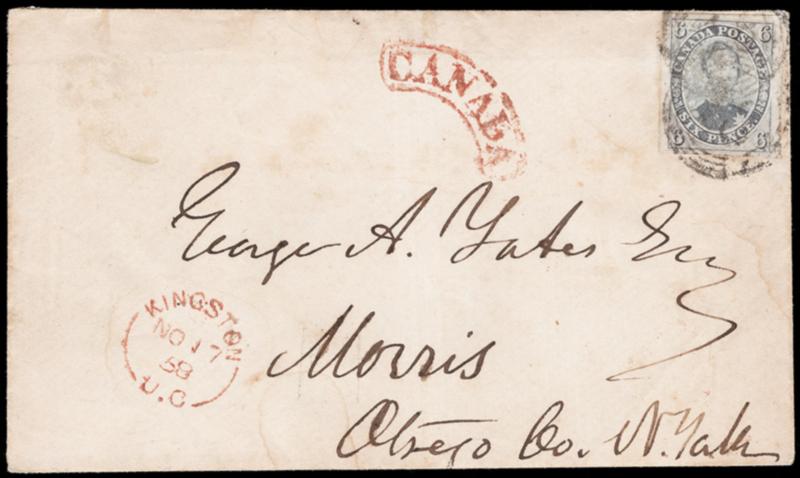 6 CANADA POSTAGE 6
SIX PENCE
6 6
CANADA
George A. Yates Esq
Morris
Otsego Co. N. York
KINGSTON
NO 17
58
U.C